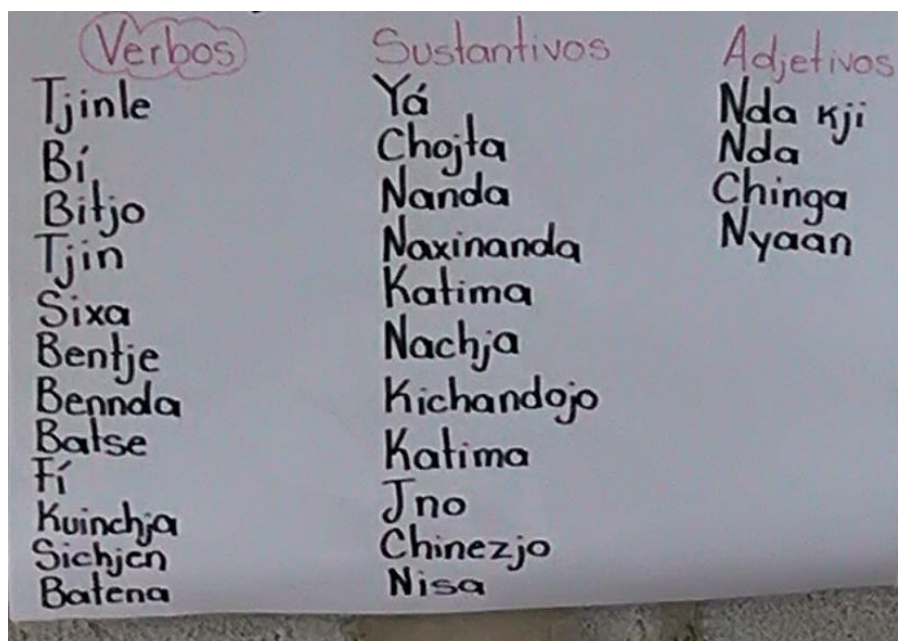 Verbos
Tjinle
Bí
Bitjo
Tjin
Sixa
Bentje
Bennda
Batse
Fí
Kuinchja
Sichjen
Batena
Sustantivos
Yá
Chojta
Nanda
Naxinanda
Katima
Nachja
Kichandojo
Katima
Jno
Chinezjo
Nisa
Adjetivos
Nda kji
Nda
Chinga
Nyaan